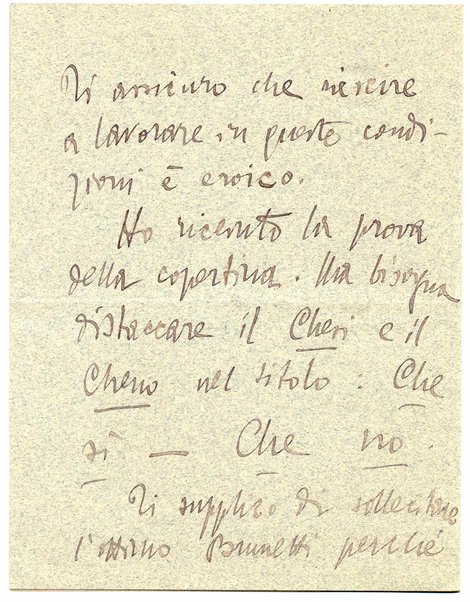 Ti assicuro che riescire
a lavorare in queste condi-
zioni è eroico.
Ho ricevuto la prova
della copertina. Ma bisogna
distaccare il Chesi e il
Cheno nel titolo: Che
sì — Che nò.
Ti supplico di sollecitare
l'ottimo Brunetti perché